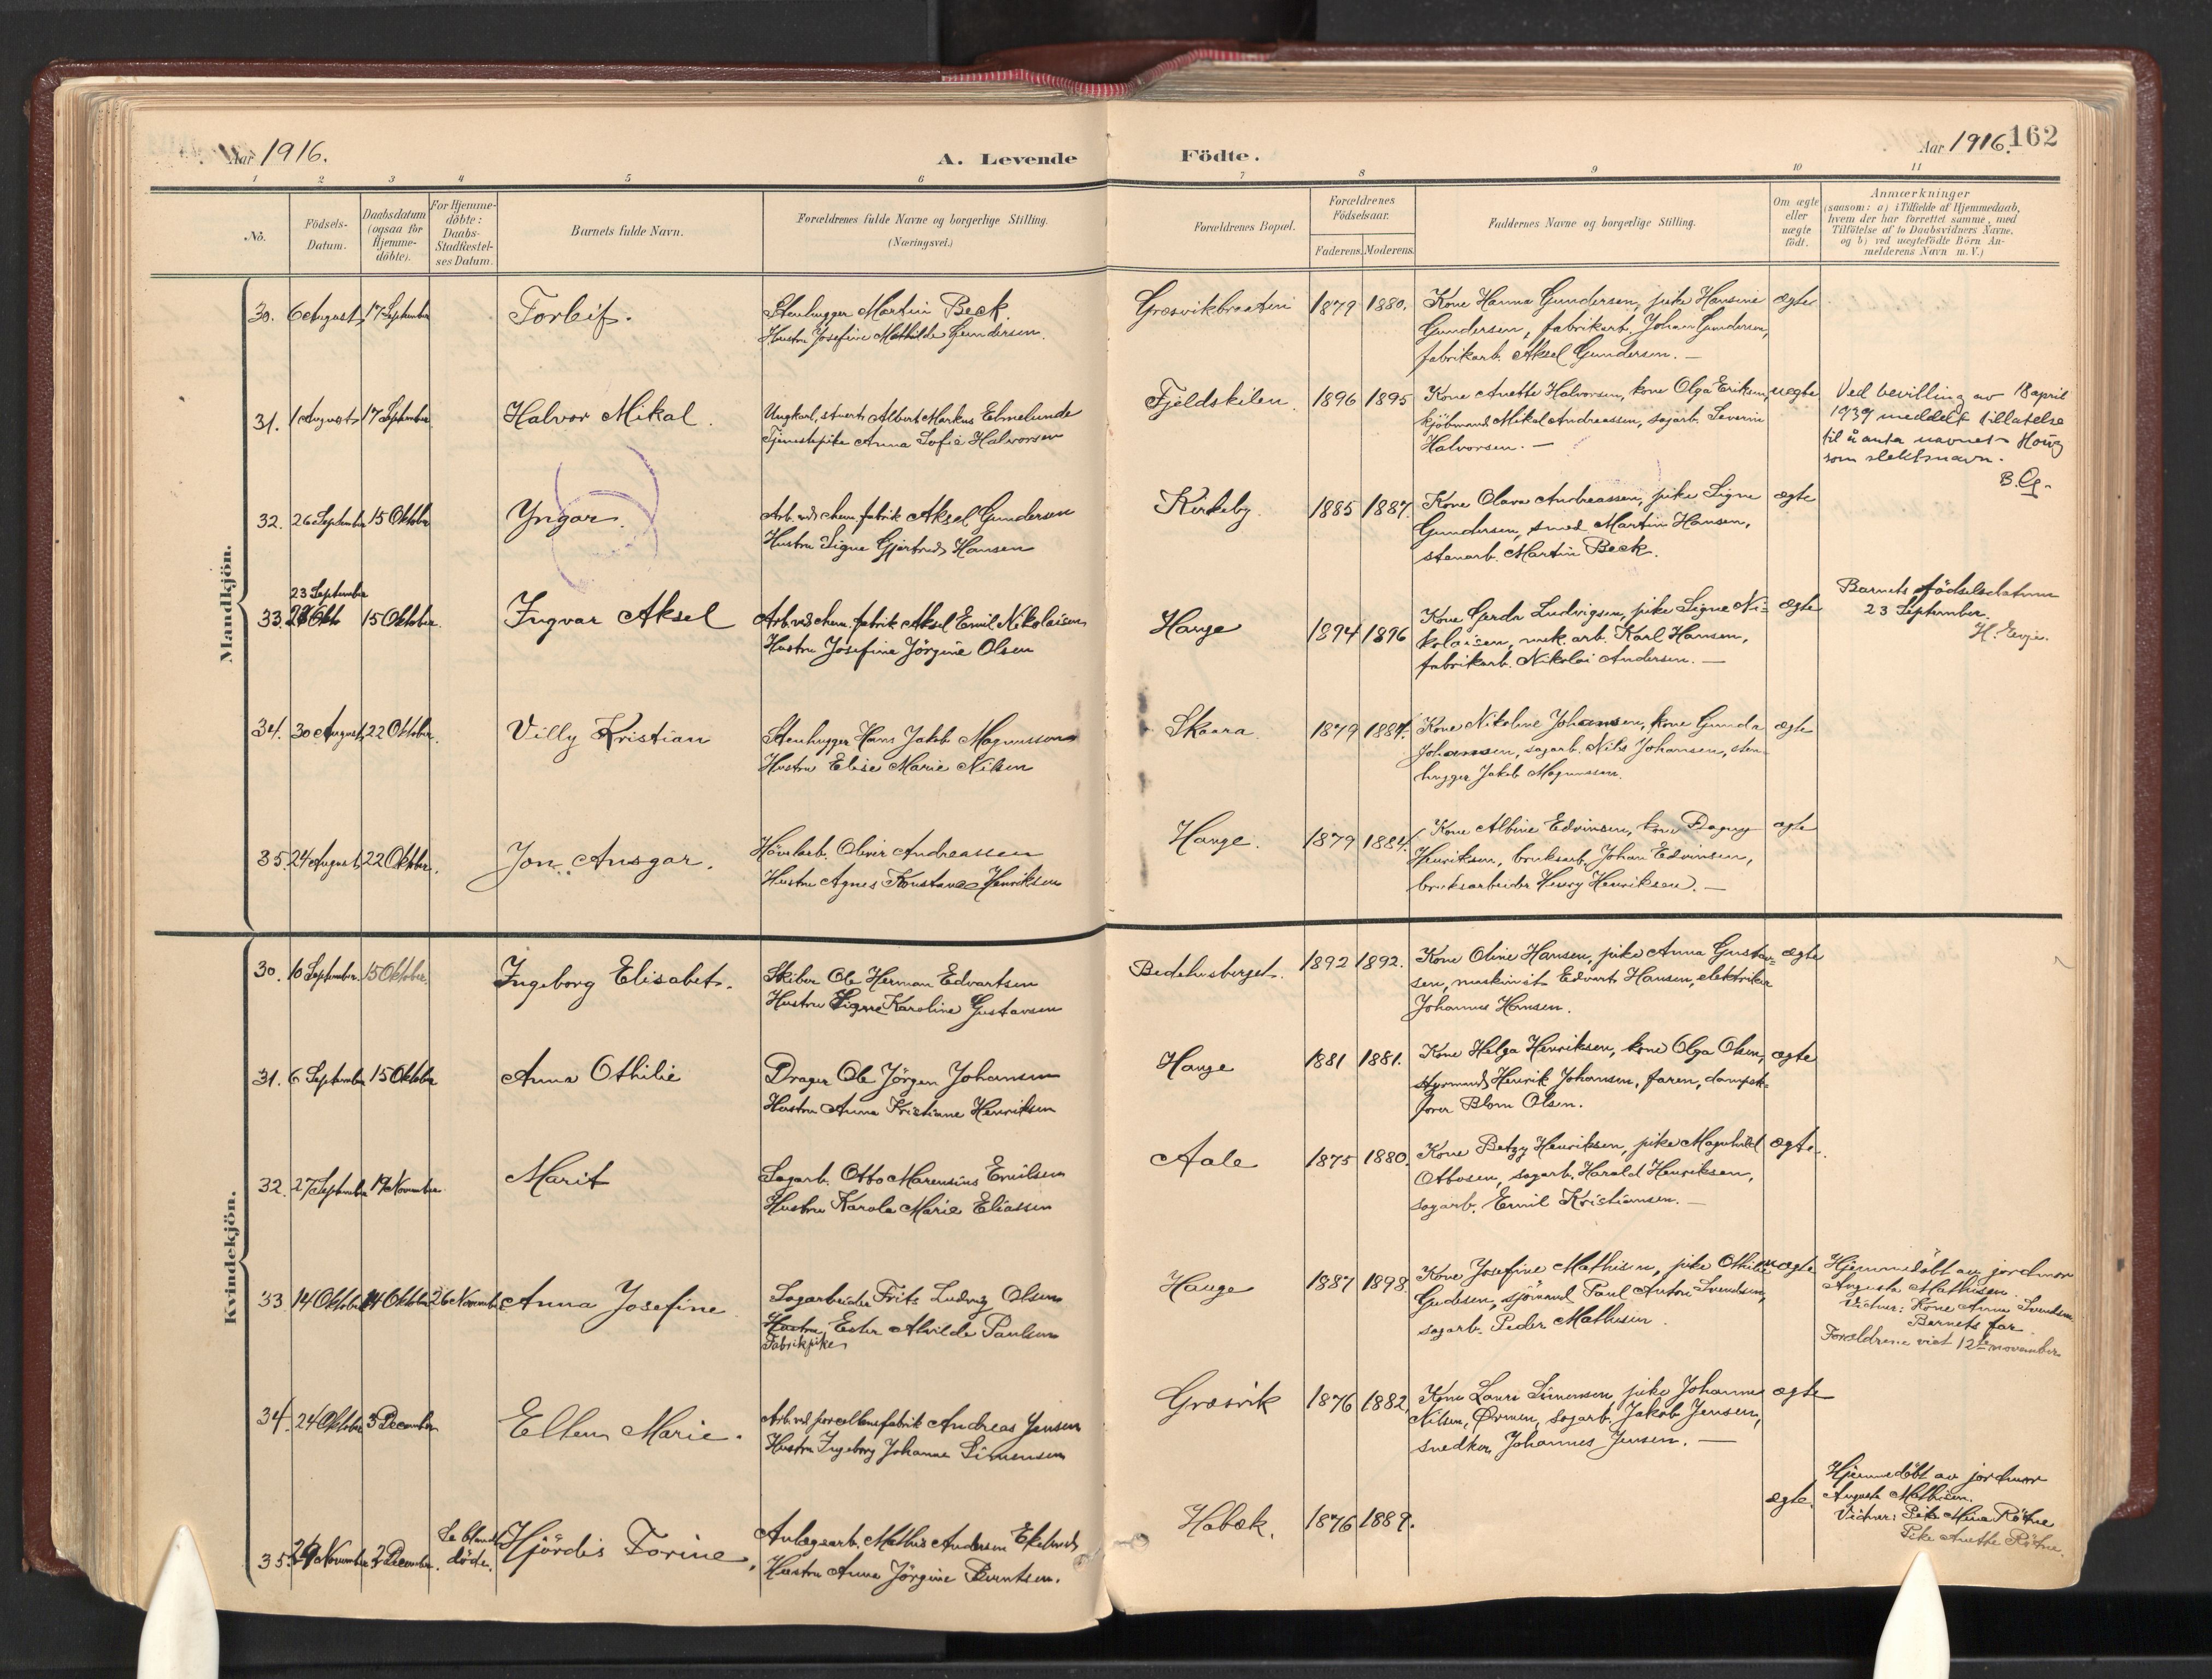 Aar 1916.
A. Levende Födte.
Aar 1916. 162
1 2 3 4 5 6 7 8 9 10 11
No.
Födsels-Datum.
Daabsdatum (ogsaa för Hjemme-döbte).
For Hjemme-döbte: Daabs-Stadfæstel-ses Datum.
Barnets fulde Navn.
Forældrenes fulde Navne og borgerlige Stilling.
(Næringsvei.)
Forældrenes Bopæl.
Forældrenes Födselsaar.
Faderens. Moderens.
Faddernes Navne og borgerlige Stilling.
Om ægte eller uægte födt.
Anmærkninger
(saasom: a) i Tilfælde af Hjemmedaab,
hvem der har forrettet samme, med
Tilföielse af to Daabsvidners Navne,
og b) ved uægtefödte Börn An-
melderens Navn m. V.)
Mandkjön.
30. 6 August 17 September Torleif. Stenhugger Martin Beck.
Hustru Josefine Mathilde Gundersen.
Græsvikbraaten 1879 1880. Kone Hanna Gundersen, pike Hansine ægte
Gundersen, fabrikarb. Johan Gundersen,
fabrikarb. Aksel Gundersen. —
31. 1 August 17 September Halvor Mikal. Ungkarl, stuert Albert Markus Elmelunde
Tjenestepike Anna Sofie Halvorsen
Fjeldskilen. 1896 1895 Kone Anette Halvorsen, kone Olga Eriksen, uægte
kjöbmand Mikal Andreassen, sagarb. Severin
Halvorsen. —
Ved bevilling av 18 april
1939 meddelt tillatelse
til å anta navnet Houg
som slektsnavn.
32. 26 September 15 Oktober Yngar. Arb. ved chem. fabrik Aksel Gundersen
Hustru Signe Gjertrud Hansen
Kirkeby. 1885 1887. Kone Olava Andreassen, pike Signe ægte
Gundersen, smed Martin Hansen,
stenarb. Martin Beck.
23 September
33. 15 Oktober. Ingvar Aksel Arb. ved chem. fabrik Aksel Emil Nikolaisen
Hustru Josefine Jörgine Olsen
Hauge 1894 1896 Kone Gerda Ludvigsen, pike Signe Ni- ægte
kolaisen, mek. arb. Karl Hansen,
fabrikarb. Nikolai Andersen. —
Barnets födselsdatum
23 September.
34. 30 August 22 Oktober. Villy Kristian Stenhugger Hans Jakob Magnussen
Hustru Elise Marie Nilsen
Skaara. 1879 1884. Kone Nikoline Johansen, kone Gunda ægte
Johansen, sagarb. Nils Johansen, sten-
hugger Jakob Magnussen.
35. 24 August 22 Oktober. Jon Ansgar. Hövlarb. Oliver Andreassen
Hustru Agnes Konstanse Henriksen
Hauge. 1879 1884. Kone Albine Edvinsen, kone Dagny ægte
Henriksen, bruksarb. Johan Edvinsen,
bruksarbeider Henry Henriksen. —
Kvindekjön.
30. 10 September. 15 Oktober. Ingeborg Elisabet. Skiber Ole Herman Edvartsen
Hustru Signe Karoline Gustavsen
Bedehusberget. 1892 1892. Kone Oline Hansen, pike Anna Gustav- ægte
sen, maskinist Edvart Hansen, elektriker
Johannes Hansen.
31. 6 September 15 Oktober Anna Othilie Drager Ole Jörgen Johansen
Hustru Anna Kristiane Henriksen
Hauge 1881 1881. Kone Helga Henriksen, kone Olga Olsen, ægte
styrmand Henrik Johansen, faren, dampsk.
förer Blom Olsen.
32. 27 September 19 November Marit Sagarb. Otto Marensius Emilsen
Hustru Karola Marie Eliassen
Aale 1875 1880. Kone Betzy Henriksen, pike Magnhild ægte.
Ottosen, sagarb. Harald Henriksen,
sagarb. Emil Kristiansen. —
33. 14 Oktober 14 Oktober 26 November Anna Josefine Sagarbeider Frits Ludvig Olsen
Hustru Ester Alvilde Paulsen
Fabrikpike
Hauge 1887 1898 Kone Josefine Mathisen, pike Othilie uægte
Gudesen, sjömand Paul Anton Svendsen,
sagarb. Peder Mathisen.
Hjemmedöbt av jordmor
Augusta Mathisen.
Vidner: Kone Anna Svendsen
Barnets far.
Forældrene viet 12te november
34. 24 Oktober 3 December Ellen Marie. Arb. ved porcellensfabrik Andreas Jensen
Hustru Ingeborg Johanne Simensen
Græsvik 1876 1882. Kone Laura Simensen, pike Johanne ægte
Nilsen, Ørmen, sagarb. Jakob Jensen,
snedker Johannes Jensen. —
35. 29 November 2 December. Se blandt döde. Hjördis Torine. Anlægsarb. Mathis Andersen Ekelund
Hustru Anna Jörgine Berntsen.
Habæk. 1876 1889. ægte.
Hjemmedöbt av jordmor
Augusta Mathisen.
Vidner: Pike Mina Rötne
Pike Anethe Rötne.